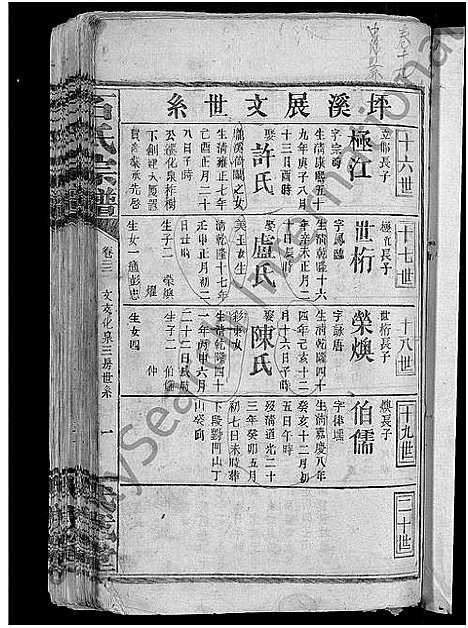 坪溪展文世系
十六世
立鄉長子
極江
字宗尊
生清康熙五十
九年庚子八月
十三日酉時
娶
許氏
生清雍正七年
己酉正月二十
八日子時
十七世
極江長子
世桁
字鳳
生清乾隆十六
年辛未正月二
十日辰時
娶
盧氏
美玉女生
清乾隆十七年
壬申正月初二
日丑時
生子二 榮煥
燿
生女一適彭忠
十八世
世桁長子
榮煥
字詠唐
生清乾隆四十
四年己亥十二
月十六日子時
娶
陳氏
彩東女
生清乾隆四十
一年丙申六月
二十二日辰時
生子二 伯
仲
生女四
十九世
煥長子
伯儒
字律
生清嘉慶八年
癸亥十二月初
五日午時
歿清道光二十
三年癸卯五月
初七日未時葬
下段對門山丁
山癸向
二十世
石氏宗譜
卷三
文友化泉三房世系
一